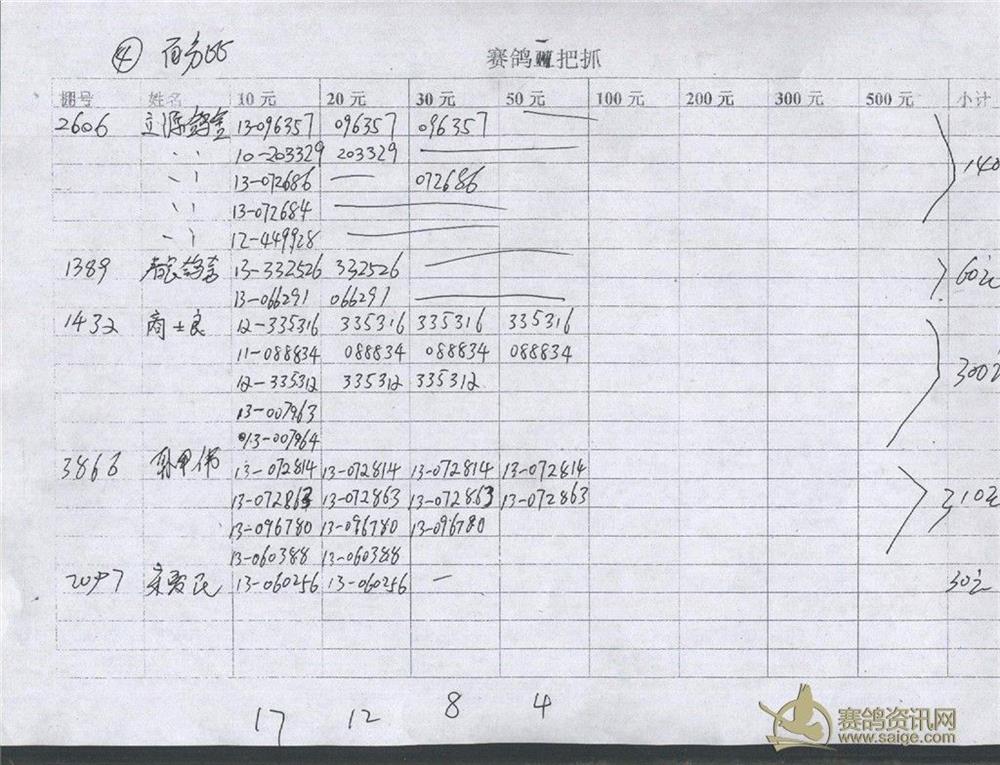 ④ 百分比
赛鸽一把抓
棚号 姓名 10 元 20 元 30 元 50 元 100 元 200 元 300 元 500 元 小计
2606 立源鸽舍 13-096357 096357 096357 —
〃 10-203329 203329 —
〃 13-072686 — 072686 140
〃 13-072684 —
〃 12-449928 —
1389 13-332526 332526 — 60元
13-066291 066291 —
1432 商士良 12-335316 335316 335316 335316
11-088834 088834 088834 088834
12-335312 335312 335312 300元
13-007963
13-007964
3866 13-072814 13-072814 13-072814 13-072814
13-072863 13-072863 13-072863 13-072863 210元
13-096780 13-096780 13-096780
13-060388 13-060388
2097 13-060256 13-060256 — 30元
17 12 8 4
赛鸽资讯网
www.saige.com